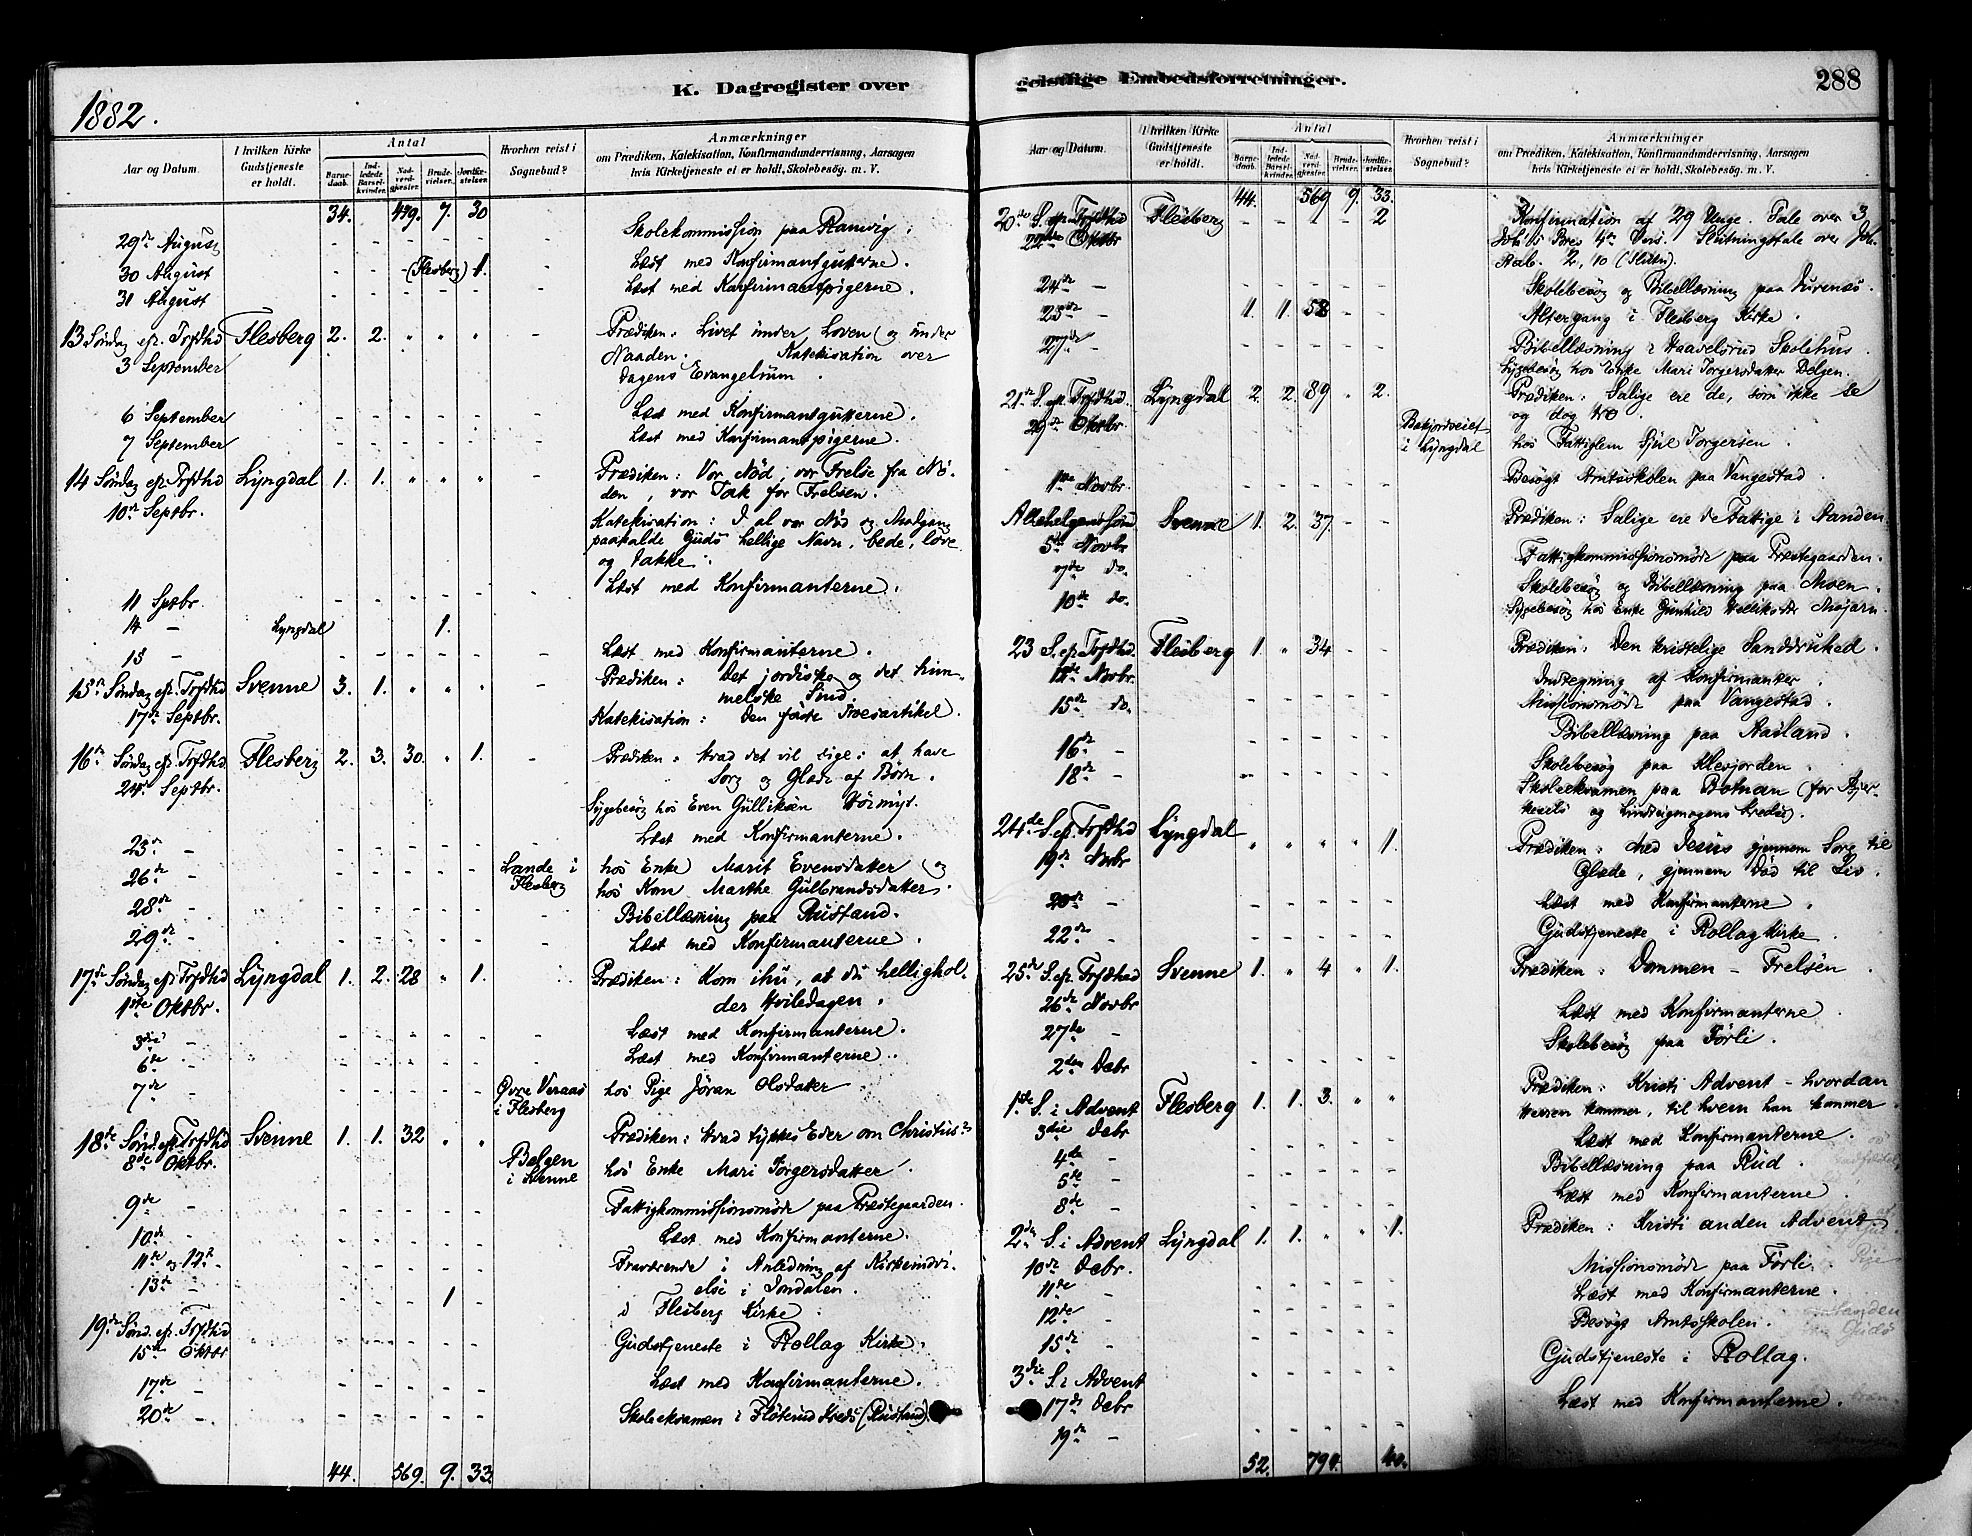 K. Dagregister over
1882.
Aar og Datum
I hvilken Kirke Gudstjeneste er holdt.
Antal
Barnedaab.
Indledede Barselkvinder.
Nadverdgjester.
Brudevielser.
Jordfæstelser.
Hvorhen reist i Sognebud?
Anmærkninger
om Prædiken, Katekisation, Konfirmandundervisning, Aarsagen
hvis Kirketjeneste ei er holdt, Skolebesøg. m. V.
34. 7. 30
29de August - - - - - Skolekommission paa
30 August - - - (Flesberg) 1. - Læst med Konfirmantgutterne.
31 August - - - - - Læst med Konfirmantpigerne.
13 Søndag ef. Trefdhd Flesberg 2. 2. " " " - Prædiken: Livet under Loven og under
3 September Naaden. Katekisation over
dagens Evangelium.
6 September - - - - - - Læst med Konfirmantgutterne.
7 September - - - - - - Læst med Konfirmantpigerne.
14 Søndag ef. Trefdhd Lyngdal 1. 1. " " " - Prædiken: Vor Nød, vor Frelse fra Nø-
10de Septbr. den, vor Tak for Frelsen.
Katekisation: I al vor Nød og
paakalde Guds hellige Navn, bede, love
og takke.
11 Sptbr. - - - - - - Læst med Konfirmanterne.
14 - Lyngdal 1.
15 - - - - - - - Læst med Konfirmanterne.
15de Søndag ef. Trefdhd Svenne 3. 1. " " " - Prædiken: Det jordiske og det him-
17de Septbr. melske Sind.
Katekisation: Den første Troesartikel.
16de Søndag ef. Trefdhd Flesberg 2. 3. 30. " 1. - Prædiken: Hvad det vil sige: at have
24de Septbr. Sorg og Glæde af Børn.
Sygebesøg hos Even Gulliksen
25de - - - - - - - Læst med Konfirmanterne.
26de - - - - - - Lande i Flesberg hos Enke Marit Evensdatter og
hos Kone Marthe Gulbrandsdatter.
28de - - - - - - - Bibellæsning paa Rustand.
29de - - - - - - - Læst med Konfirmanterne.
17de Søndag ef. Trefdhd Lyngdal 1. 2. 28 " 1. Prædiken: Kom ihu, at du hellighol-
1ste Oktbr. der Hviledagen.
3die - - - - - - - Læst med Konfirmanterne.
6te - - - - - - - Læst med Konfirmanterne.
7de - - - - - - Øvre Veraas i Flesberg hos Pige Jøran Olsdatter
18de Sønd. ef. Trefdhd Svenne 1. 1. 32 " " Prædiken: Hvad tykkes Eder om Christus?
8de Oktbr. i Svenne hos Enke Mari Torgersdatter.
9de - - - - - - Fattigkommissionsmøde paa Præstegaarden.
10de - - - - - - Læst med Konfirmanterne.
11te og 12te - - - - - - Fraværende i Anledning af Kirkeindvi-
else i Jondalen.
13de - 1 - i Flesberg Kirke
19de Sønd. ef. Trefdhd
15de Oktbr - - - - - Gudstjeneste i Rollag Kirke.
17de - - - - - - Læst med Konfirmanterne.
20de - - - - - - Skoleexamen i Kreds (Rustand)
44. 569. 9. 33.
geistlige Embedsforretninger.
288
Aar og Datum.
I hvilken Kirke Gudstjeneste er holdt.
Antal
Barnedaab.
Indledede Barselkvinder.
Nadverdgjester.
Brudevielser.
Jordfæstelser.
Hvorhen reist i Sognebud?
Anmærkninger
om Prædiken, Katekisation, Konfirmandundervisning, Aarsagen
hvis Kirketjeneste ei er holdt, Skolebesøg. m. V.
44. 569 9. 33.
20de S. ef. Trefdhd Flesberg - - - - 2 Konfirmation af 29 Unge. Tale over 3
22de Oktbr Joh's Brev 4de Vers. Slutningstale over Joh.
Aab. 2, 10 (Slutn).
24de - - - - - - Skolebesøg og Bibellæsning paa
25de - 1. 1. 58 - - Altergang i Flesberg Kirke.
27de - - - - - - Bibellæsning i Skolehus.
Sygebesøg hos Enke Mari Torgersdatter
21de S. ef. Trefdhd. Lyngdal 2. 2. 89 " 2. Prædiken: Salige ere de, som ikke se
29de Oktbr og dog tro.
i Lyngdal hos Fattiglem Torgersen.
1ste Novbr. - - - - - Besøgt Amtsskolen paa Vangestad.
Allehelgens Svenne 1. 2. 37. - - Prædiken: Salige ere de Fattige i Aanden.
5te Novbr
7de do. - - - - - Fattigkommissionsmøde paa Præstegaarden.
10de do. - - - - - Skolebesøg og Bibellæsning paa Moen.
Sygebesøg hos Enke Gunhild
23 S. ef. Trefdhd. Flesberg 1. " 34 - - Prædiken: Den kristelige Sanddruhed.
12te Novbr. Indtegning af Konfirmanter.
15de do. - - - - - Missionsmøde paa Vangestad.
16de - - - - - - Bibellæsning paa Aasland.
18de - - - - - - Skolebesøg paa
Skoleexamen paa (for
og Kredse).
24de S. ef. Trefdhd Lyngdal " " " " 1. Prædiken: Med Jesus gjennem Sorg til
19de Novbr Glæde, gjennem Død til Liv.
20de - - - - - - Læst med Konfirmanterne.
22de - - - - - - Gudstjeneste i Rollag Kirke.
25de S. ef. Trefdhd Svenne 1. " 4 " 1. Prædiken: Dommen - Frelsen
26de Novbr
27de - - - - - - Læst med Konfirmanterne.
2den Debr - - - - - Skolebesøg paa Førli.
1ste S. i Advent Flesberg 1. 1. 3. " " Prædiken: Kristi Advent - hvordan
3die Debr Herren kommer, til hvem han kommer.
4de - - - - - - Læst med Konfirmanterne.
5te - - - - - - Bibellæsning paa Rud.
8de - - - - - - Læst med Konfirmanterne.
2den S. i Advent Lyngdal 1. 1. " " 1. Prædiken: Kristi anden Advent
10de Debr.
11te - - - - - - Missionsmøde paa Førli.
12te - - - - - - Læst med Konfirmanterne.
15de - - - - - - Besøgt Amtsskolen.
3die S. i Advent
17de Debr - - - - - Gudstjeneste i Rollag.
19de - - - - - - Læst med Konfirmanterne.
52. 794. 40.